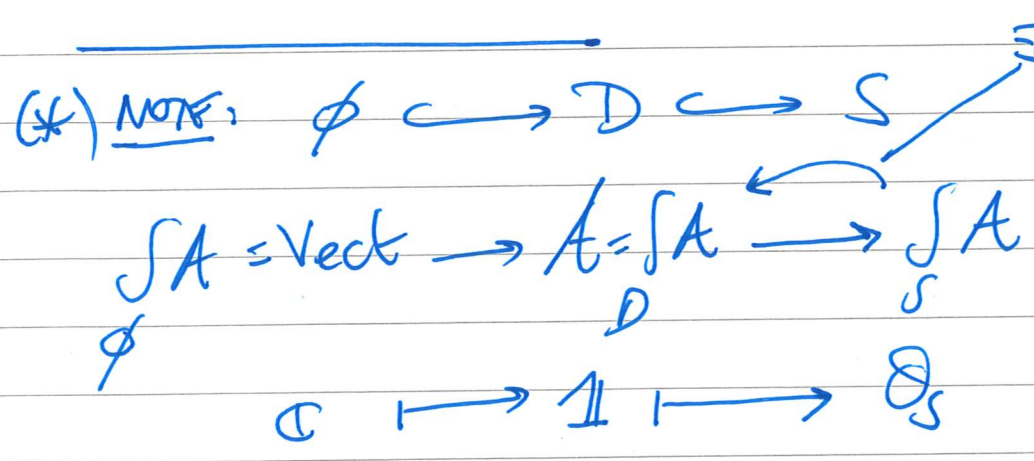 (*) NOTE: ∅ ↪ D ↪ S
∫_∅ A = Vect → A = ∫_D A → ∫_S A
ℂ ↦ 𝟙 ↦ O_S